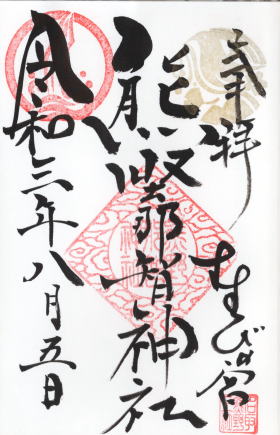 奉拝
むすび宮
熊野那智神社
令和三年八月五日